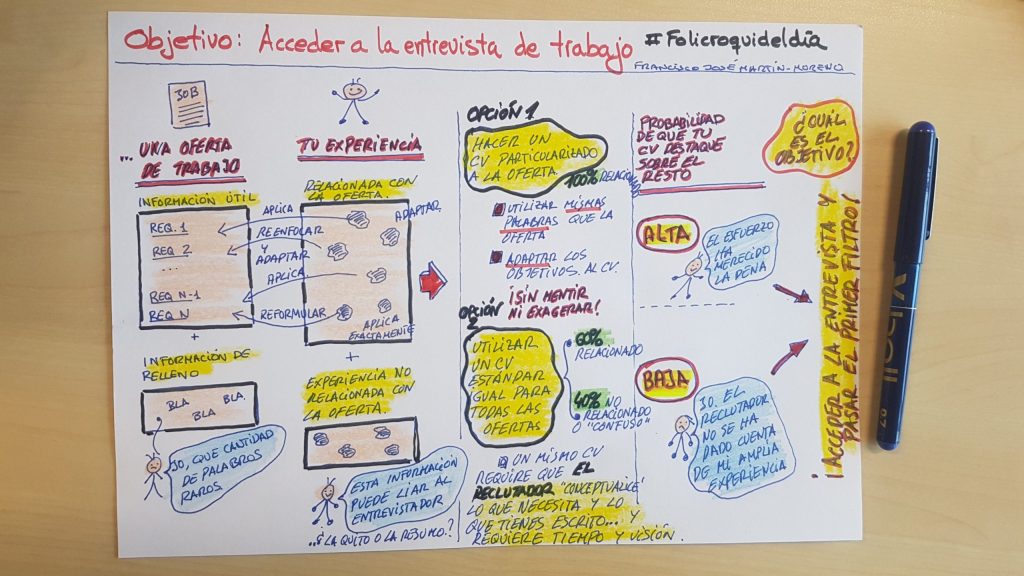 Objetivo: Acceder a la entrevista de trabajo #Folicroquideldía
FRANCISCO JOSÉ MARTÍN-MORENO
JOB
... UNA OFERTA
DE TRABAJO
INFORMACIÓN ÚTIL
REQ. 1
REQ 2
...
REQ N-1
REQ N
+
INFORMACIÓN DE
RELLENO
BLA BLA
BLA
JO, QUE CANTIDAD
DE PALABROS
RAROS
TU EXPERIENCIA
RELACIONADA CON
LA OFERTA.
APLICA
ADAPTAR
REENFOLAR
Y
ADAPTAR
APLICA.
REFORMULAR
APLICA
EXACTAMENTE
+
EXPERIENCIA NO
RELACIONADA CON
LA OFERTA
ESTA INFORMACIÓN
PUEDE LIAR AL
ENTREVISTADOR
...¿LA QUITO O LA RESUMO?
OPCIÓN 1
HACER UN
CV PARTICULARIZADO
A LA OFERTA
100% RELACIO
UTILIZAR MISMAS
PALABRAS QUE LA
OFERTA
ADAPTAR LOS
OBJETIVOS AL CV.
¡SIN MENTIR
NI EXAGERAR!
OPCIÓN
2
UTILIZAR
UN CV
ESTÁNDAR
IGUAL PARA
TODAS LAS
OFERTAS
60%
RELACIONADO
40% NO
RELACIONADO
O "CONFUSO"
UN MISMO CV
REQUIRE QUE EL
RECLUTADOR "CONCEPTUALICE"
LO QUE NECESITA Y LO
QUE TIENES ESCRITO... Y
REQUIERE TIEMPO Y VISIÓN.
PROBABILIDAD
DE QUE TU
CV DESTAQUE
SOBRE EL
RESTO
ALTA
EL ESFUERZO
HA
MERECIDO
LA PENA
BAJA
JO. EL
RECLUTADOR
NO SE HA
DADO CUENTA
DE MI AMPLIA
EXPERIENCIA
¿CUÁL
ES EL
OBJETIVO?
¡ACCEDER A LA ENTREVISTA Y
PASAR EL PRIMER FILTRO!
V Ball